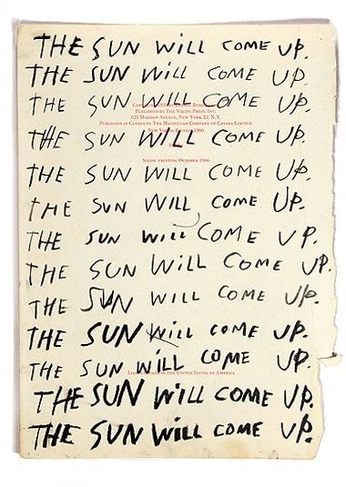 THE SUN WiLL COME UP.
THE SUN WiLL COME UP.
THE SUN WiLL COME UP.
Published by The Viking Press, Inc.
625 Madison Avenue, New York 22, N.Y.
Published in Canada by The Macmillan Company of Canada Limited
THE SUN WILL COME UP.
Sixth printing October 1966
THE SUN WiLL COME UP.
THE SUN WiLL COME UP.
THE SUN WiLL COME UP.
THE SUN WiLL COME UP.
THE SUN WILL COME UP.
THE SUN Will COME UP.
THE SUN WiLL COME UP.
in the United States of America
THE SUN WiLL COME UP.
THE SUN WiLL COME UP.